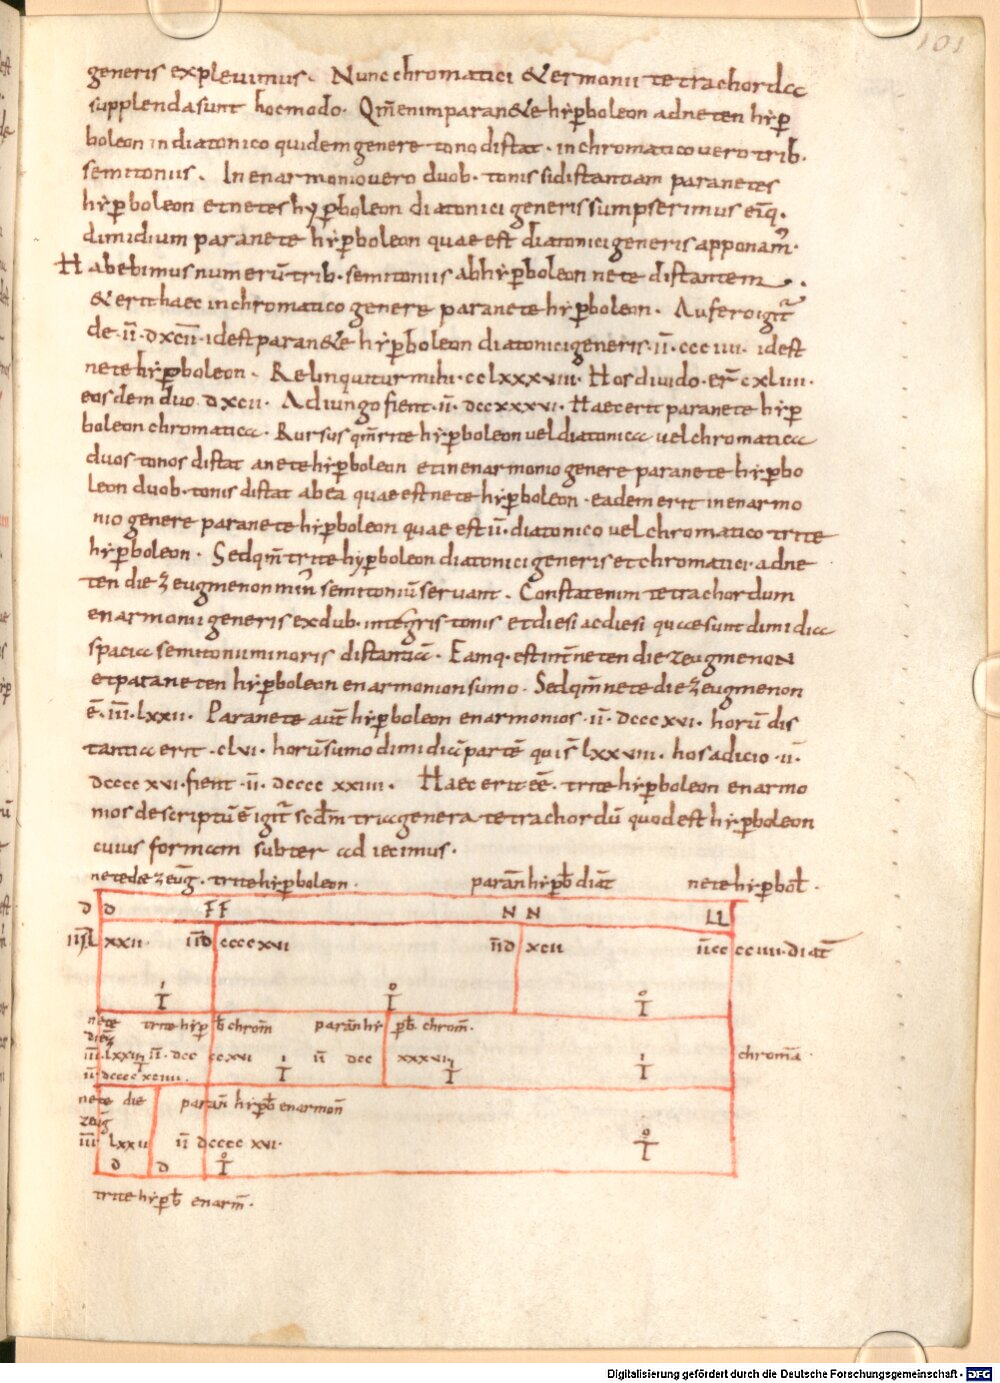 101
generis explevimus. Nunc chromatici & ermonii tetrachorda
supplenda sunt hoc modo. Qm̄ enim paran&e hyp̱boleon ad neten hyp̱
boleon in diatonico quidem genere tono distat. in chromatico vero trib.
semitoniis. In enarmonio vero duob. tonis si distantiam paranetes
hyp̱boleon et netes hyp̱boleon diatonici generis sumpserimus eiq.
dimidium paranete hyp̱boleon quae est diatonici generis apponam̄.
Habebimus numerū trib. semitoniis ab hyp̱boleon nete distantem.
& erit haec in chromatico genere paranete hyp̱boleon. Aufero igit̄
de .ii̅. dxcii. id est paran&e hyp̱boleon diatonici generis .ii̅. ccciiii. id est
nete hyp̱boleon. Relinquitur mihi .cclxxxviii. Hos divido. er̄ cxliiii.
eosdem duo dxcii. Adiungo fient .ii̅. dccxxxvi. Haec erit paranete hyp̱
boleon chromatica. Rursus qm̄ trite hyp̱boleon vel diatonica vel chromatica
duos tonos distat a nete hyp̱boleon et in enarmonio genere paranete hyp̱bo
leon duob. tonis distat ab ea quae est nete hyp̱boleon. eadem erit in enarmo
nio genere paranete hyp̱boleon quae est ū. diatonico vel chromatico trite
hyp̱boleon. Sed qm̄ trite hyp̱boleon diatonici generis et chromatici. ad ne
ten diezeugmenon min̄ semitoniū servant. Constat enim tetrachordum
enarmonii generis ex dub. integris tonis et diesi ac diesi quae sunt dimidia
spacia semitonii minoris distantiā. Eamq. est int̄ neten diezeugmenon
et paraneten hyp̱boleon enarmonion sumo. Sed qm̄ nete diezeugmenon
ē. iii̅. lxxii. Paranete aut̄ hyp̱boleon enarmonios .ii̅. dccccxvi. horū dis
tantia erit .clvi. horū sumo dimidiā partē qui s̄ lxxviii. hos adicio .ii̅.
dccccxvi. fient .ii̅. dcccc xxiiii. Haec erit eē. trite hyp̱boleon enarmo
nios descriptū ē igit̄ scd̄m tria genera tetrachordū quod est hyp̱boleon
cuius formam subter adiecimus.
nete diezeug̅. trite hyp̱boleon. paran̄ hyp̱b̄ diat̄ nete hyp̱bol̄.
D D FF NN LL
xxii. ii̅d ccccxvi ii̅d xcii ii̅cc cciiii. diat̄
T T T
nete trite hyp̱b̄ chrom̄ paran̄ hy p̱b̄ chrom̄.
diez̄
iii̅. lxxii ii̅. dcc ccxvi ii̅ dcc xxxvi chromā.
ii̅. dcccc xciiii. T T T
nete die paran̄ hyp̱b̄ enarmon̄
zeug̅
iii̅ lxxii ii̅ dcccc xvi.
D D T T
trite hyp̱b̄ enarm̄.
Digitalisierung gefördert durch die Deutsche Forschungsgemeinschaft - DFG